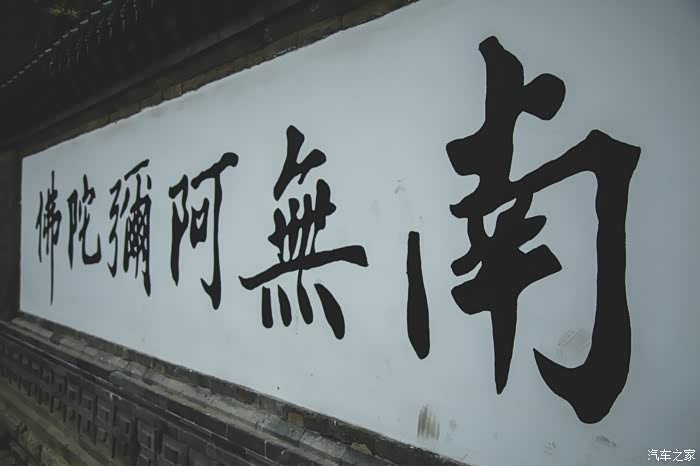 南無阿彌陀佛
汽车之家